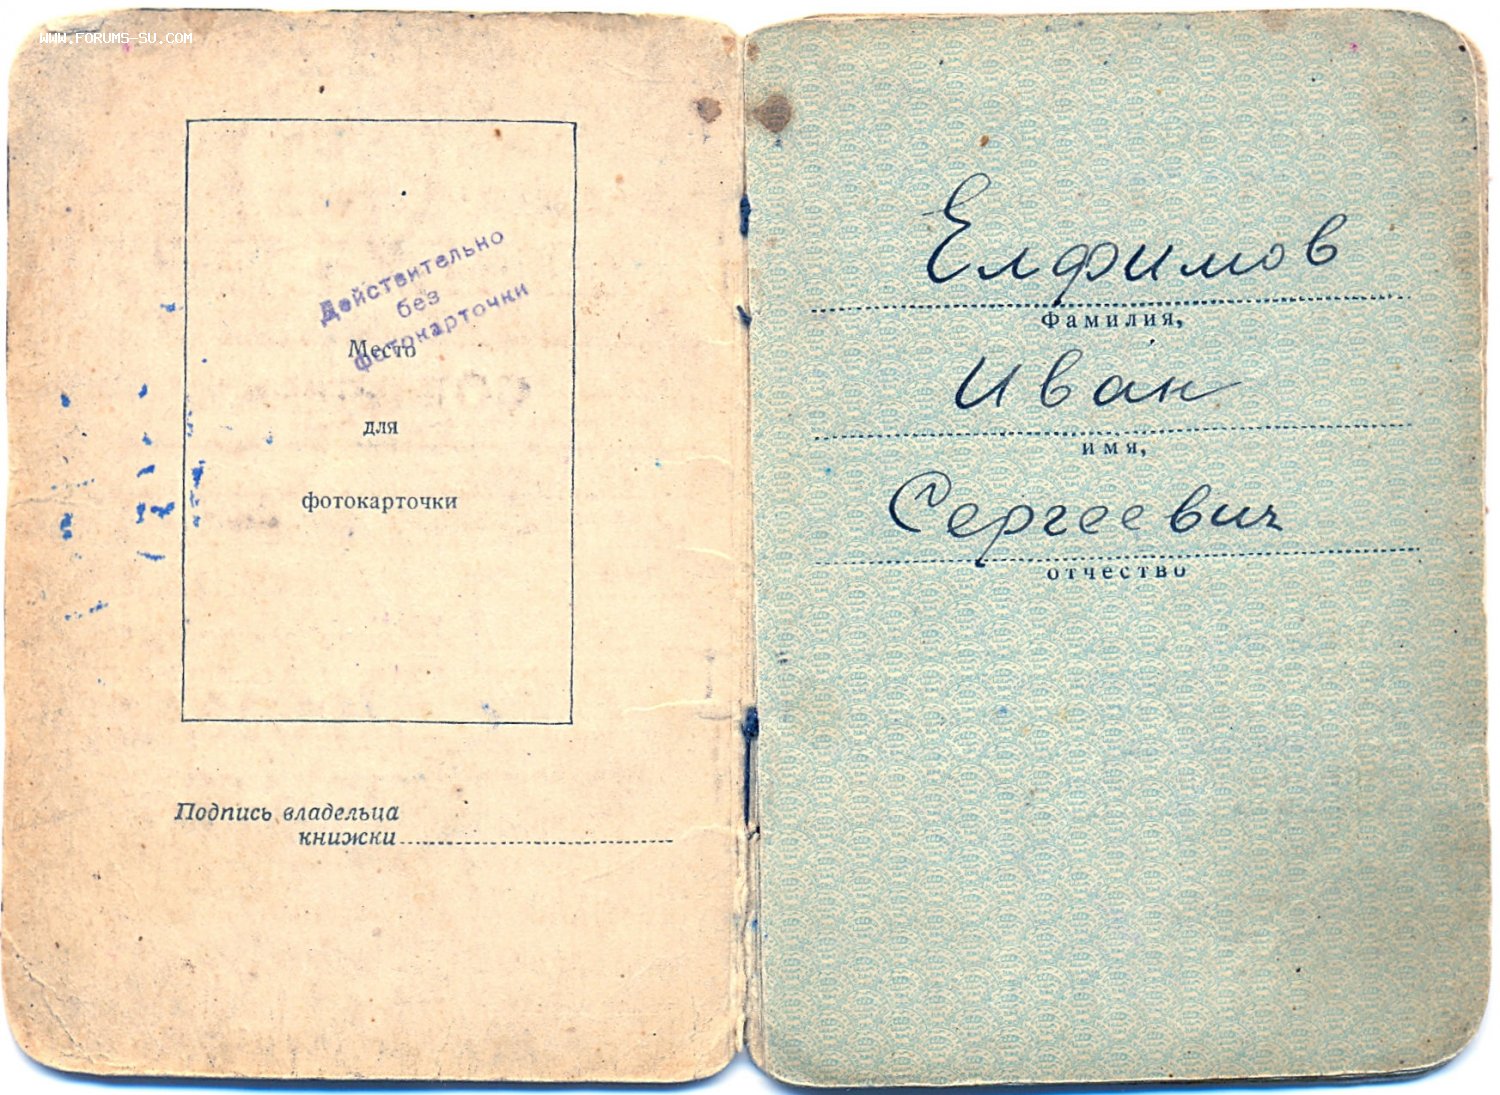 WWW.FORUMS-SU.COM
Действительно
без
фотокарточки
Место
для
фотокарточки
Подпись владельца
книжки
Елфимов
Фамилия,
Иван
имя,
Сергеевич
отчество